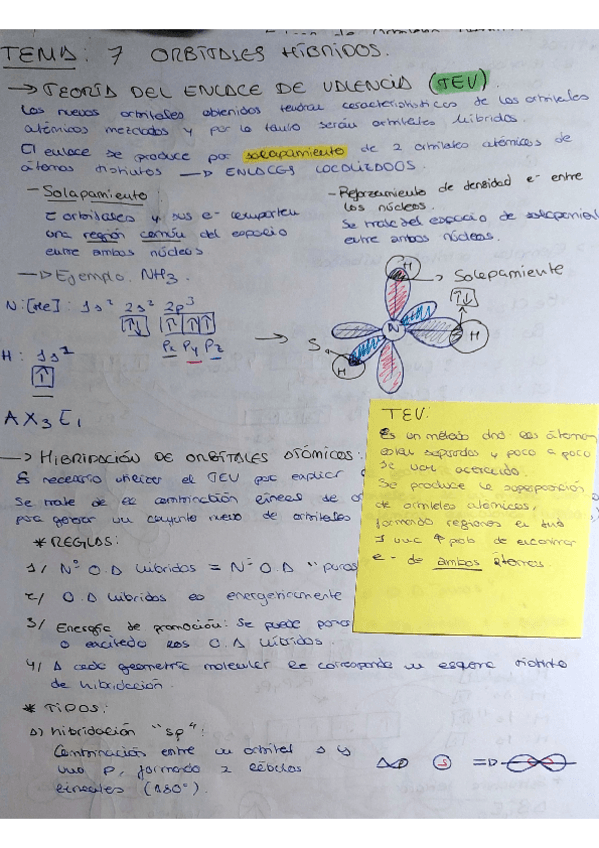 TEMA: 7 ORBITALES HÍBRIDOS.
→ TEORÍA DEL ENLACE DE VALENCIA (TEV)
Los nuevos orbitales obtenidos tendrán características de los orbitales
atómicos mezclados y por lo tanto serán orbitales híbridos.
El enlace se produce por solapamiento de 2 orbitales atómicos de
átomos distintos → ENLACES LOCALIZADOS.
- Solapamiento:
2 orbitales y sus e- comparten
una región común del espacio
entre ambos núcleos
- Reforzamiento de densidad e- entre
los núcleos.
Se trata del espacio de solapamiento
entre ambos núcleos.
→ Ejemplo. NH3.
N: [He]: 1s² 2s² 2p³
↑↓ ↑ ↑ ↑
Px Py Pz
H: 1s²
↑
AX3E1
H
Solapamiento
↑↓
N
H
S
H
TEV:
Es un método dnd los átomos
están separados y poco a poco
se van acercando.
Se produce la superposición
de orbitales atómicos,
formando regiones en tud
una ↑ prob de encontrar
e- de ambos átomos.
→ HIBRIDACIÓN DE ORBITALES ATÓMICOS:
Es necesario utilizar el TEV par explicar
Se trata de la combinación lineal de o
para generar un conjunto nuevo de orbitales
* REGLAS:
1/ Nº O.A híbridos = Nº O.A "puros
2/ O.A híbridos es energeticamente
3/ Energía de promoción: Se puede
o excitado los O.A híbridos.
4/ A cada geometría molecular le corresponde un esquema distinto
de hibridación.
* TIPOS:
a) hibridación "sp":
Combinación entre un orbital s y
uno p, formando 2 lóbulos
lineales (180°).
S